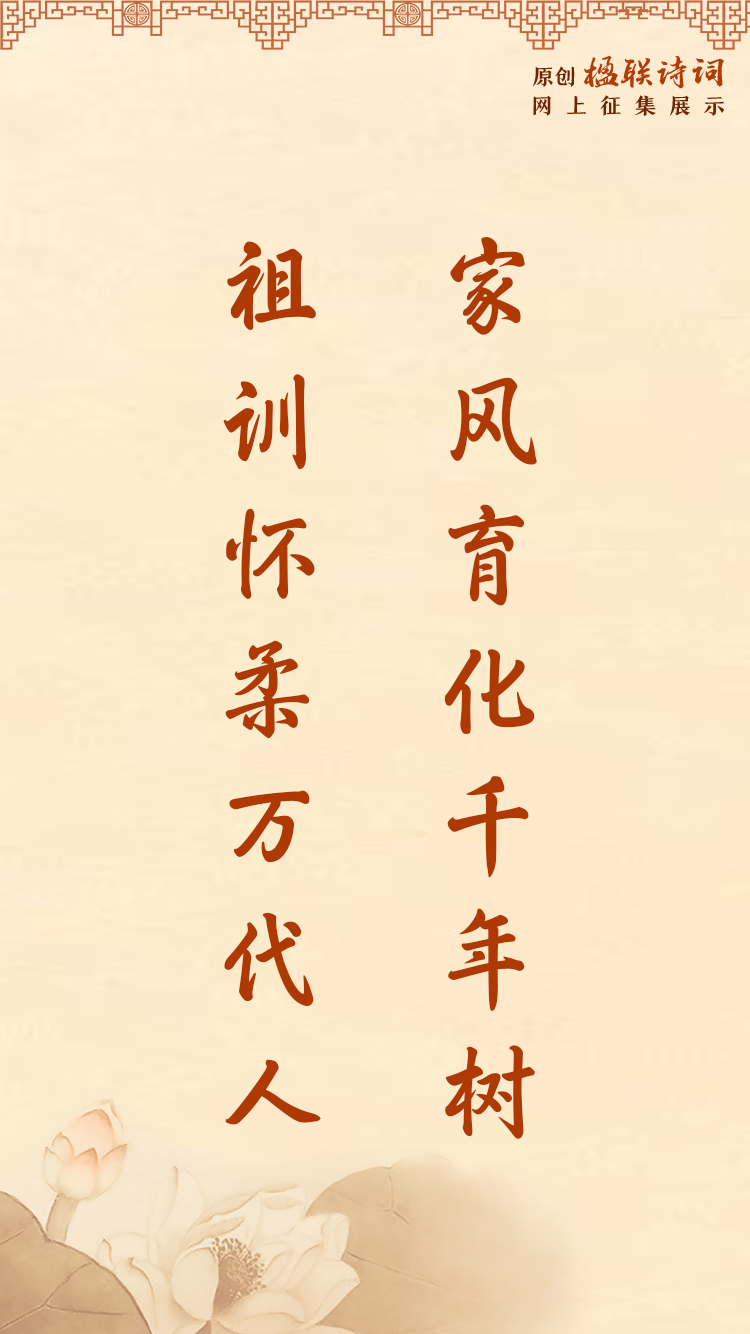 原创楹联诗词
网上征集展示
家风育化千年树
祖训怀柔万代人